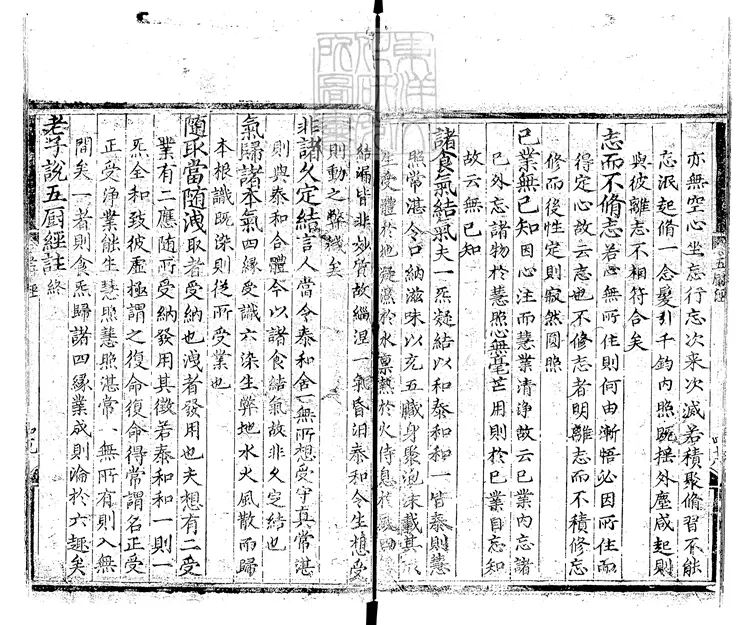 亦無空心坐忘行忘次来次滅若積聚脩習不能
忘泯起脩一念髮引千鈞内照既摇外塵咸起則
與彼離志不相符合矣
志而不脩志若心無所住則何由漸悟必因所住而
得定心故云志也不修志者明離志而不積修忘
修而後性定則寂然圓照
已業無已知因心注而慧業清浄故云已業内忘諸
已外忘諸物於慧照心無毫芒用則於已業自忘知
故云無已知
諸食氣結氣夫一炁凝結以和泰和和一皆泰則慧
照常湛今口納滋味以充五臟身聚泡沫載其形
生受體於地凝濕於水禀熱於火持息於風四緣
結漏皆非妙質故緇涅一氣昏汩泰和令生想受
則動之弊穢矣
非諸久定結言人當令泰和含一無所想受守真常湛
則與泰和合體今以諸食結氣故非久定結也
氣歸諸本氣四緣受識六染生弊地水火風散而歸
本根識既染則從所受業也
随取當随洩取者受納也洩者發用也夫想有二受
業有二應随所受納發用其徵若泰和和一則一
炁全和致彼虚極謂之復命復命得常謂名正受
正受浄業能生慧照慧照湛常一無所有則入無
間矣一者則食炁歸諸四緣業成則淪於六趣矣
老子說五厨經註終